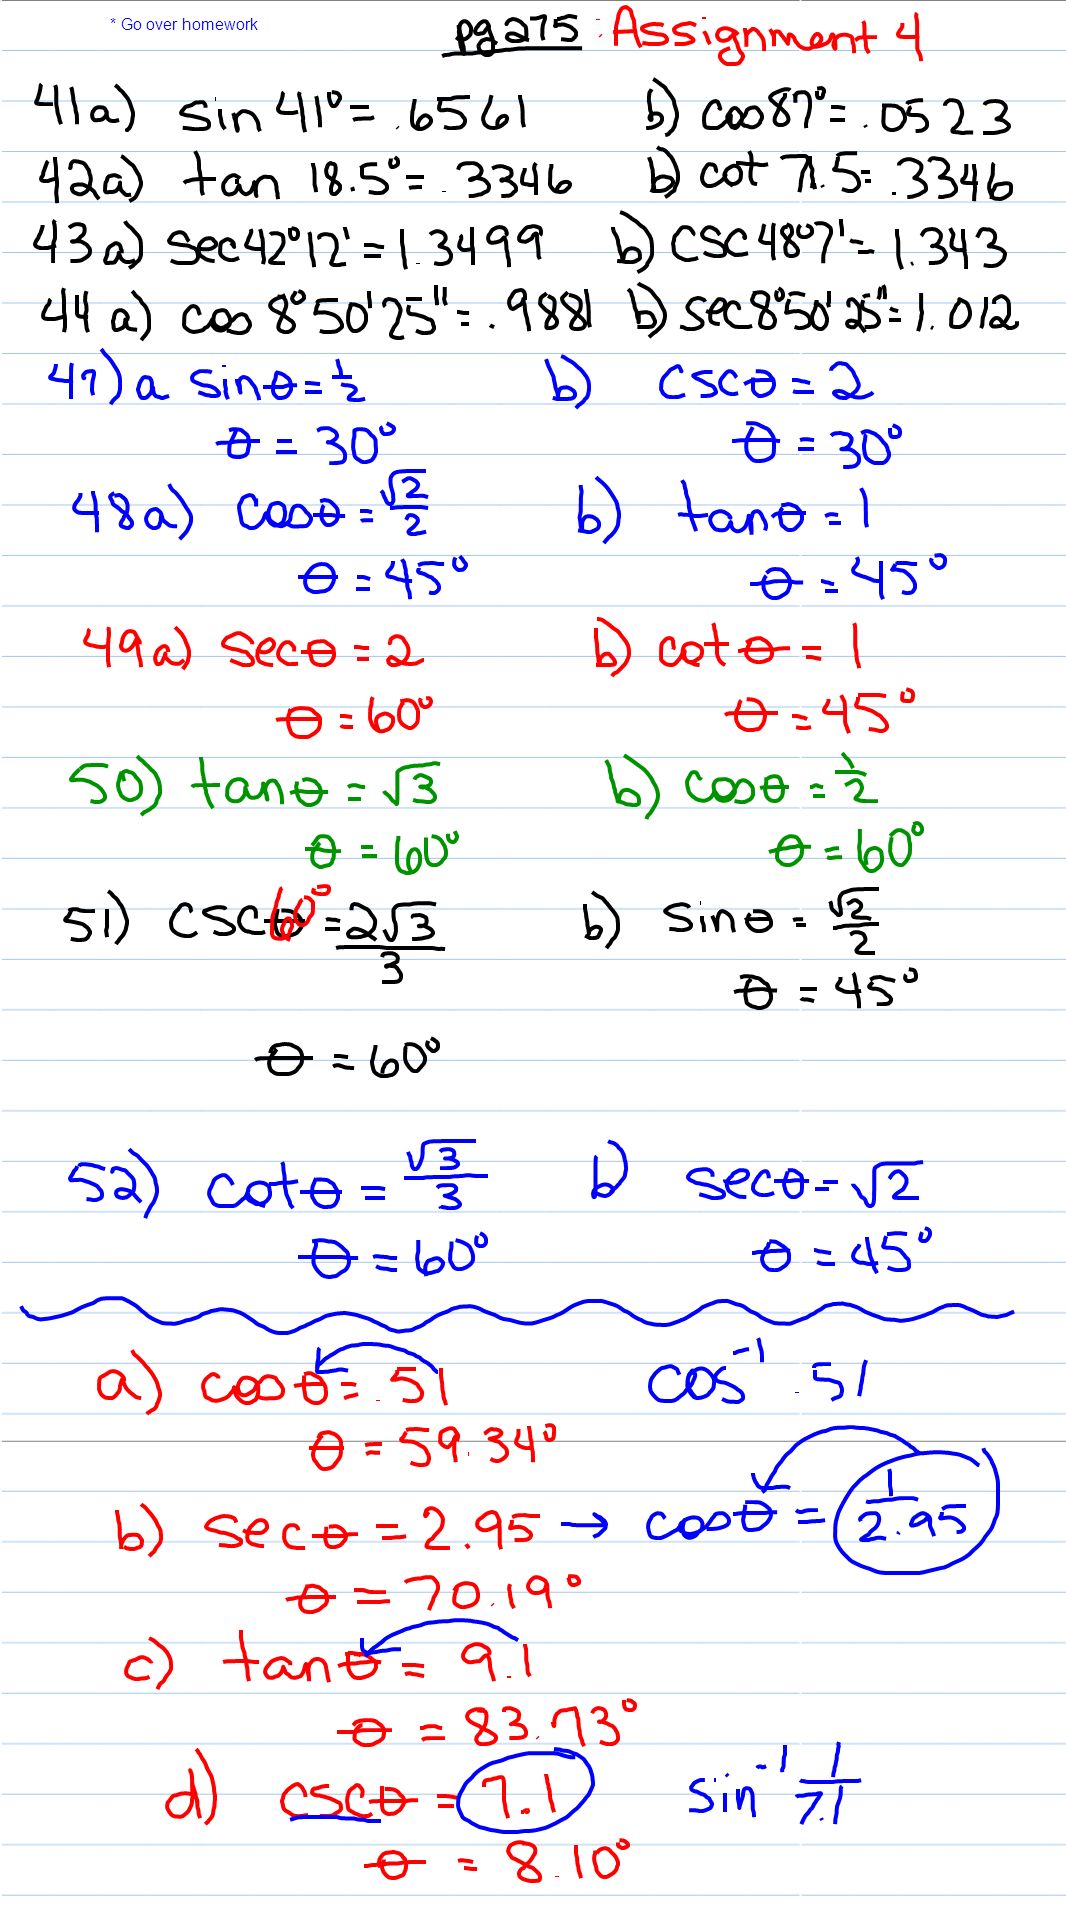 * Go over homework
pg 275 : Assignment 4
41a) sin 41° = .6561 b) cos 87° = .0523
42a) tan 18.5° = .3346 b) cot 71.5 = .3346
43a) sec 42°12' = 1.3499 b) csc 48°7' = 1.343
44a) cos 8°50'25" = .9881 b) sec 8°50'25" = 1.012
47) a sinθ = 1/2 b) cscθ = 2
θ = 30° θ = 30°
48a) cosθ = √2/2 b) tanθ = 1
θ = 45° θ = 45°
49a) secθ = 2 b) cotθ = 1
θ = 60° θ = 45°
50) tanθ = √3 b) cosθ = 1/2
θ = 60° θ = 60°
51) cscθ 60° = 2√3/3 b) sinθ = √2/2
θ = 45°
θ = 60°
52) cotθ = √3/3 b) secθ = √2
θ = 60° θ = 45°
a) cosθ = .51 cos⁻¹ .51
θ = 59.34°
b) secθ = 2.95 → cosθ = 1/2.95
θ = 70.19°
c) tanθ = 9.1
θ = 83.73°
d) cscθ = 7.1 sin⁻¹ 1/7.1
θ = 8.10°